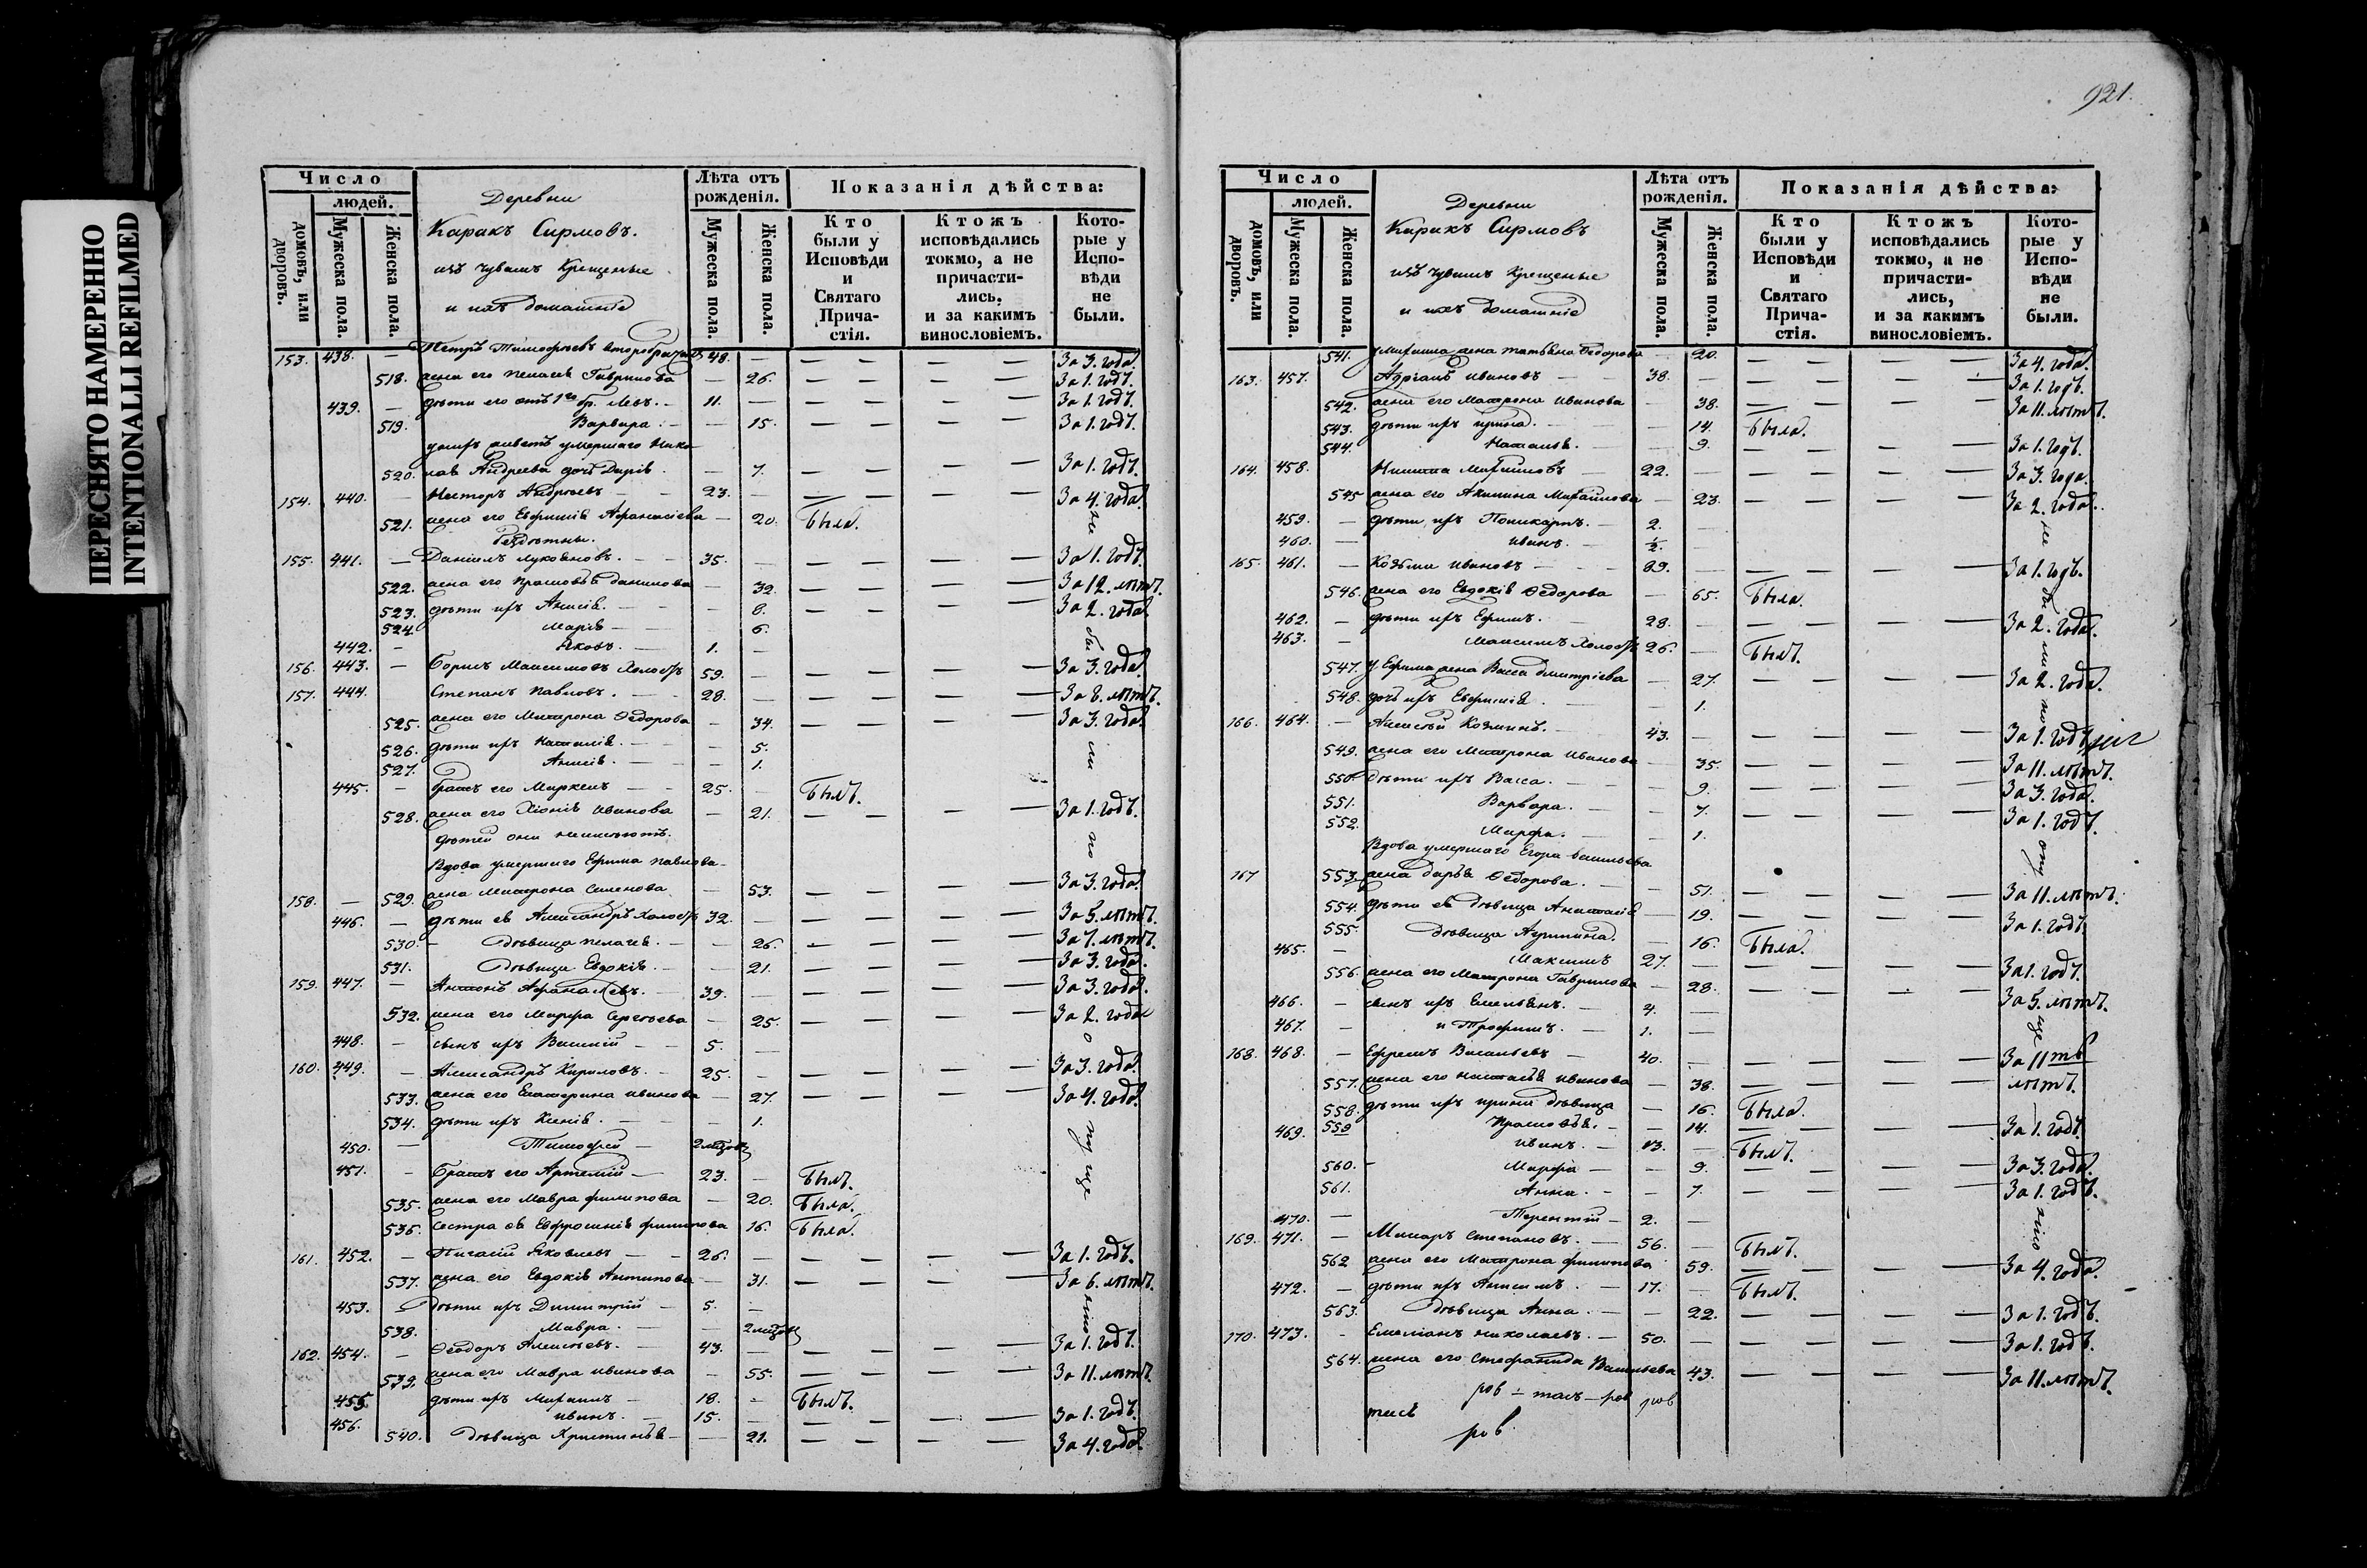 ПЕРЕСНЯТО НАМЕРЕННО
INTENTIONALLI REFILMED
Число
людей.
домовъ, или дворовъ.
Мужеска пола.
Женска пола.
Деревни
Каракъ Сирмовъ.
изъ чувашъ крещеные
и ихъ домашніе
Лѣта отъ рожденія.
Мужеска пола.
Женска пола.
Показанія дѣйства:
Кто были у Исповѣди и Святаго Прича- стія.
Ктожъ исповѣдались токмо, а не причасти- лись, и за какимъ винословіемъ.
Кото- рые у Испо- вѣди не были.
153. 438. — Петръ Тимофеевъ второбрачный 48. — За 3. года.
518. жена его Пелагея Гаврилова — 26. За 1. годъ.
439. — дѣти его отъ 1го бр. Левъ. — 11. — За 1. годъ.
519. Варвара. — — 15. За 1. годъ.
умершаго Нико-
520. лая Андреева дочь Дарія. — 7. За 1. годъ.
154. 440. — Несторъ Андреевъ — 23. — За 4. года.
521. жена его Евфимія Афанасіева — 20. Была.
бездѣтны.
155. 441. — Даніилъ Лукояновъ. — 35. — За 1. годъ.
522. жена его Прасковья Данилова — 32. За 12. лѣтъ.
523. дѣти ихъ Анисія. — 8. За 2. года.
524. Марія — 6.
442. — Яковъ. — 1. —
156. 443. — Борисъ Максимовъ холостъ 59. — За 3. года.
157. 444. Степанъ Павловъ. — 28. — За 8. лѣтъ.
525. жена его Матрона Ѳедорова — 34. За 3. года.
526. дѣти ихъ Наталія. — 5.
527. Анисія. — 1.
445. — братъ его Маркелъ — 25. — Былъ.
528. жена его Хіонія Иванова — 21. За 1. годъ.
дѣтей они неимѣютъ.
Вдова умершаго Ефима Павлова
158. — 529. жена Матрона Семенова — 53. За 3. года.
446. — дѣти ея Александръ холостъ 32. — За 5. лѣтъ.
530. — дѣвица Пелагея. — 26. За 7. лѣтъ.
531. дѣвица Евдокія. — 21. За 3. года.
159. 447. — Антонъ Афанасьевъ. 39. — За 3. года.
532. жена его Марфа Сергѣева — 25. За 2. года
448. — сынъ ихъ Василій — 5. —
160. 449. — Александръ Кириловъ. — 25. — За 3. года.
533. жена его Екатерина Иванова — 27. За 4. года.
534. дѣти ихъ Ксенія. — 1.
450. — Тимофей — 2 мѣсяц
451. — братъ его Артемій — 23. — Былъ.
535. жена его Мавра Филипова — 20. Была.
536. сестра ея Евфросинія Филипова 16. Была.
161. 452. — Яковлевъ — 26. — За 1. годъ.
537. жена его Евдокія Антипова — 31. За 6. лѣтъ.
453. — дѣти ихъ Димитрій — 5. —
538. Мавра. — 2 мѣсяц
162. 454. — Ѳеодоръ Алексѣевъ. — 43. — За 1. годъ.
539. жена его Мавра Иванова — 55. За 11. лѣтъ.
455. дѣти ихъ Михаилъ — 18. — Былъ.
456. Иванъ. — 15. — За 1. годъ.
540. дѣвица Христинья — 21. За 4. года.
не были по опущенію
921.
Число
людей.
домовъ, или дворовъ.
Мужеска пола.
Женска пола.
Деревни
Каракъ Сирмовъ
изъ чувашъ крещеные
и ихъ домашніе
Лѣта отъ рожденія.
Мужеска пола.
Женска пола.
Показанія дѣйства:
Кто были у Исповѣди и Святаго Прича- стія.
Ктожъ исповѣдались токмо, а не причасти- лись, и за какимъ винословіемъ.
Кото- рые у Испо- вѣди не были.
541. у Михаила жена Татьяна Ѳедорова — 20. За 4. года.
163. 457. Адріанъ Ивановъ — 38. — За 1. годъ.
542. жена его Матрона Иванова — 38. За 11. лѣтъ.
543. дѣти ихъ Ирина. — 14. Была.
544. Наталья. — 9. За 1. годъ.
164. 458. Никита Михайловъ — 22. — За 3. года.
545 жена его Акилина Михайлова — 23. За 2. года.
459. — дѣти ихъ Поликарпъ. — 2. —
460. — Иванъ. — ½. —
165. 461. — Козьма Ивановъ — 69. — За 1. годъ.
546. жена его Евдокія Ѳедорова — 65. Была.
462. — дѣти ихъ Ефимъ. — 28. — За 2. года.
463. — Максимъ холостъ 26. — Былъ.
547. у Ефима жена Васса Дмитріева — 27. За 2. года.
548. дочь ихъ Евфимія — 1.
166. 464. — Алексѣй Козминъ. — 43. — За 1. годъ
549. жена его Матрона Иванова — 35. За 11. лѣтъ.
550. дѣти ихъ Васса. — 9. За 3. года.
551. Варвара. — 7. За 1. годъ.
552. Марфа. — 1.
Вдова умершаго Егора Васильева
167 553. жена Дарья Ѳедорова. — 51. За 11. лѣтъ.
554. дѣти ея дѣвица Анастасія — 19. За 1. годъ.
555. дѣвица Агрипина. — 16. Была.
465. — Максимъ 27. — За 1. годъ.
556. жена его Матрона Гаврилова — 28. За 5. лѣтъ.
466. — сынъ ихъ Емельянъ. — 4. —
467. — и Трофимъ. — 1. —
168. 468. — Ефремъ Васильевъ — 40. — За 11ть
лѣтъ.
557. жена его Наталья Иванова — 38.
558. дѣти ихъ Ирина дѣвица — 16. Была.
559 Прасковья. — 14. За 1. годъ.
469. Иванъ. — 13. — Былъ.
560. — Марфа — 9. За 3. года.
561. Анна. — 7. За 1. годъ.
470. — Терентій — 2. —
169. 471. — Макаръ Степановъ. — 56. — Былъ.
562 жена его Матрона Филипова 59. За 4. года.
472. — дѣти ихъ Анисимъ — 17. — Былъ.
563. дѣвица Анна. — 22. За 1. годъ.
170. 473. — Емеліанъ Николаевъ. — 50. — За 1. годъ.
564. жена его Стефанида Васильева 43. За 11. лѣтъ.
не были по опущенію
ров